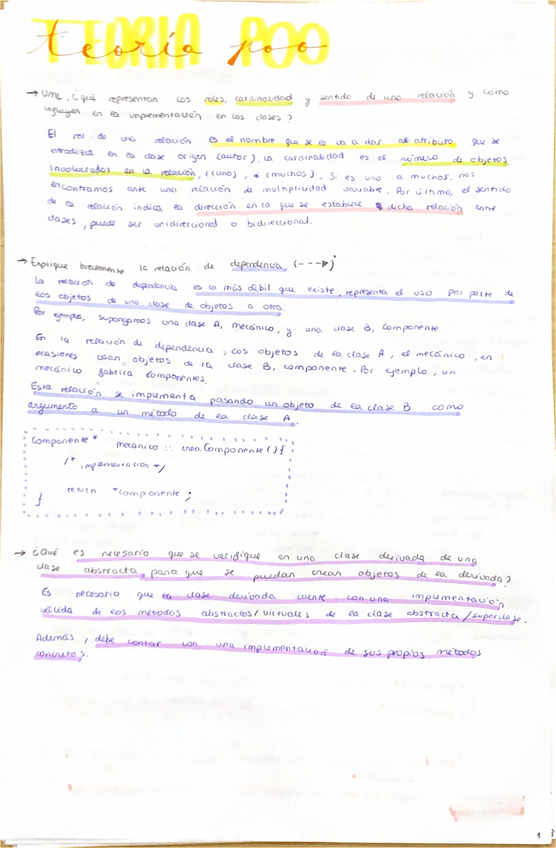 TEORÍA POO
teoría poo
→ UML, ¿qué representan los roles, cardinalidad y sentido de una relación y cómo
influyen en la implementación en las clases?
El rol de una relación es el nombre que se le va a dar al atributo que se
introduzca en la clase origen (autor). La cardinalidad es el número de objetos
involucrados en la relación, 1 (uno), * (muchos). Si es uno a muchos, nos
encontramos ante una relación de multiplicidad variable. Por último, el sentido
de la relación indica la dirección en la que se establece dicha relación entre
clases, puede ser unidireccional o bidireccional.
→ Explique brevemente la relación de dependencia (--->)
La relación de dependencia es la más débil que existe, representa el uso por parte de
los objetos de una clase de objetos a otra.
Por ejemplo, supongamos una clase A, mecánico, y una clase B, componente
En la relación de dependencia, los objetos de la clase A, el mecánico, en
ocasiones usan objetos de la clase B, componente. Por ejemplo, un
mecánico fabrica componentes.
Esta relación se implementa pasando un objeto de la clase B como
argumento a un método de la clase A.
Componente* mecanico :: crearComponente(){
/* implementacion */
return *componente;
}
→ ¿Qué es necesario que se verifique en una clase derivada de una
clase abstracta para que se puedan crear objetos de la derivada?
Es necesario que la clase derivada cuente con una implementación
válida de los métodos abstractos/virtuales de la clase abstracta/superclase.
Además, debe contar con una implementación de sus propios métodos
concretos.
1